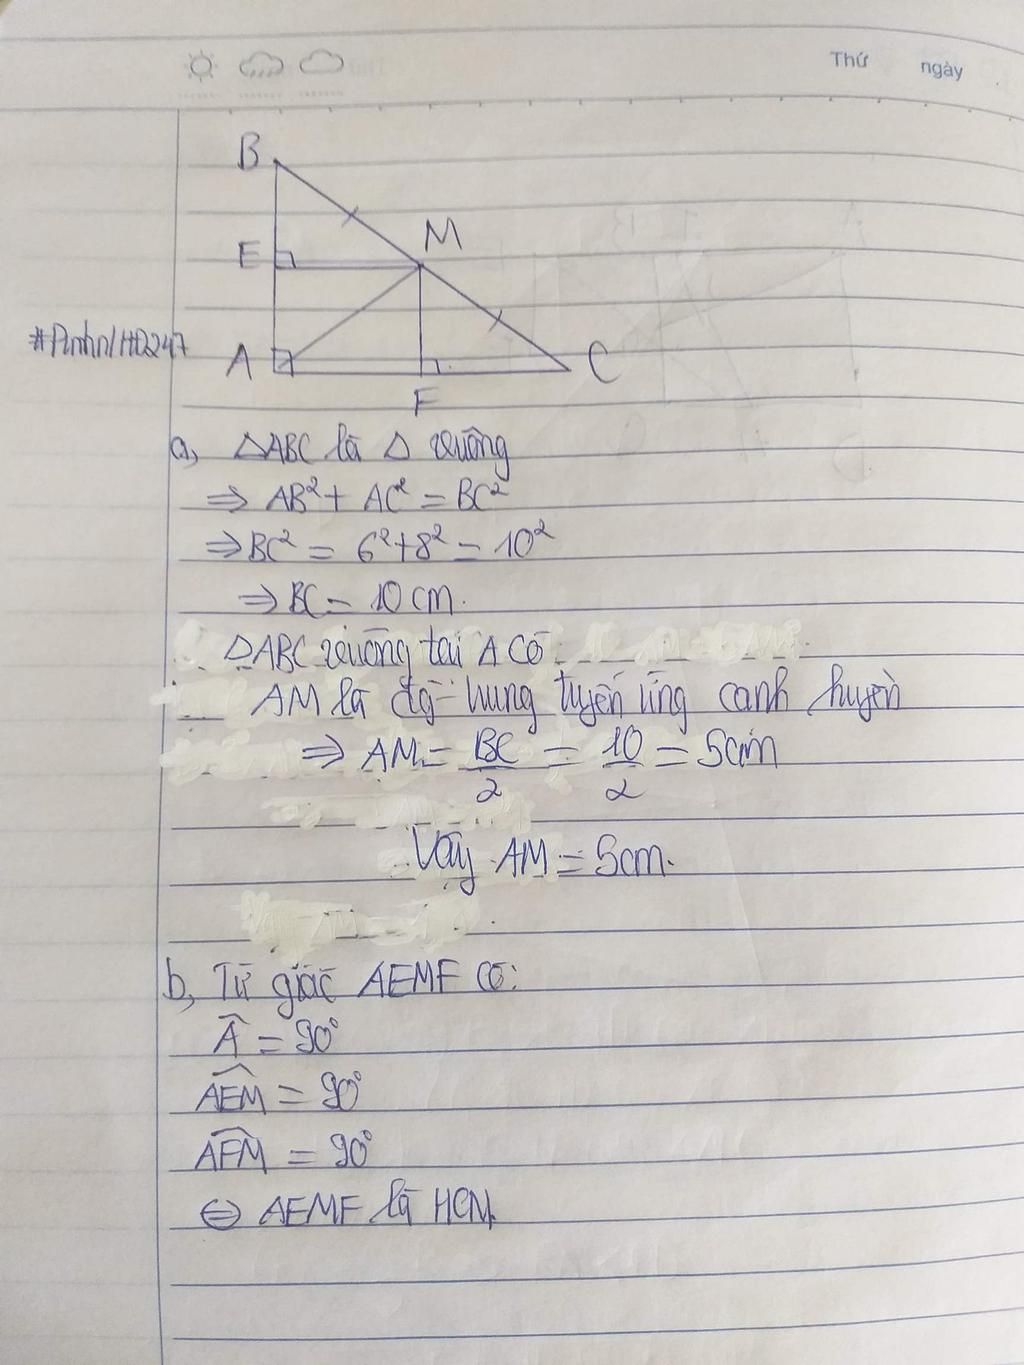 Thứ ngày
B
M
E
A
C
F
a, △ABC là △ vuông
⇒ AB² + AC² = BC²
⇒ BC² = 6² + 8² = 10²
⇒ BC = 10 cm.
△ABC vuông tại A có
AM là đg trung tuyến ứng cạnh huyền
⇒ AM = BC/2 = 10/2 = 5cm
Vậy AM = 5cm.
b, Tứ giác AEMF có:
Â = 90°
AEM = 90°
AFM = 90°
⇔ AEMF là HCN.